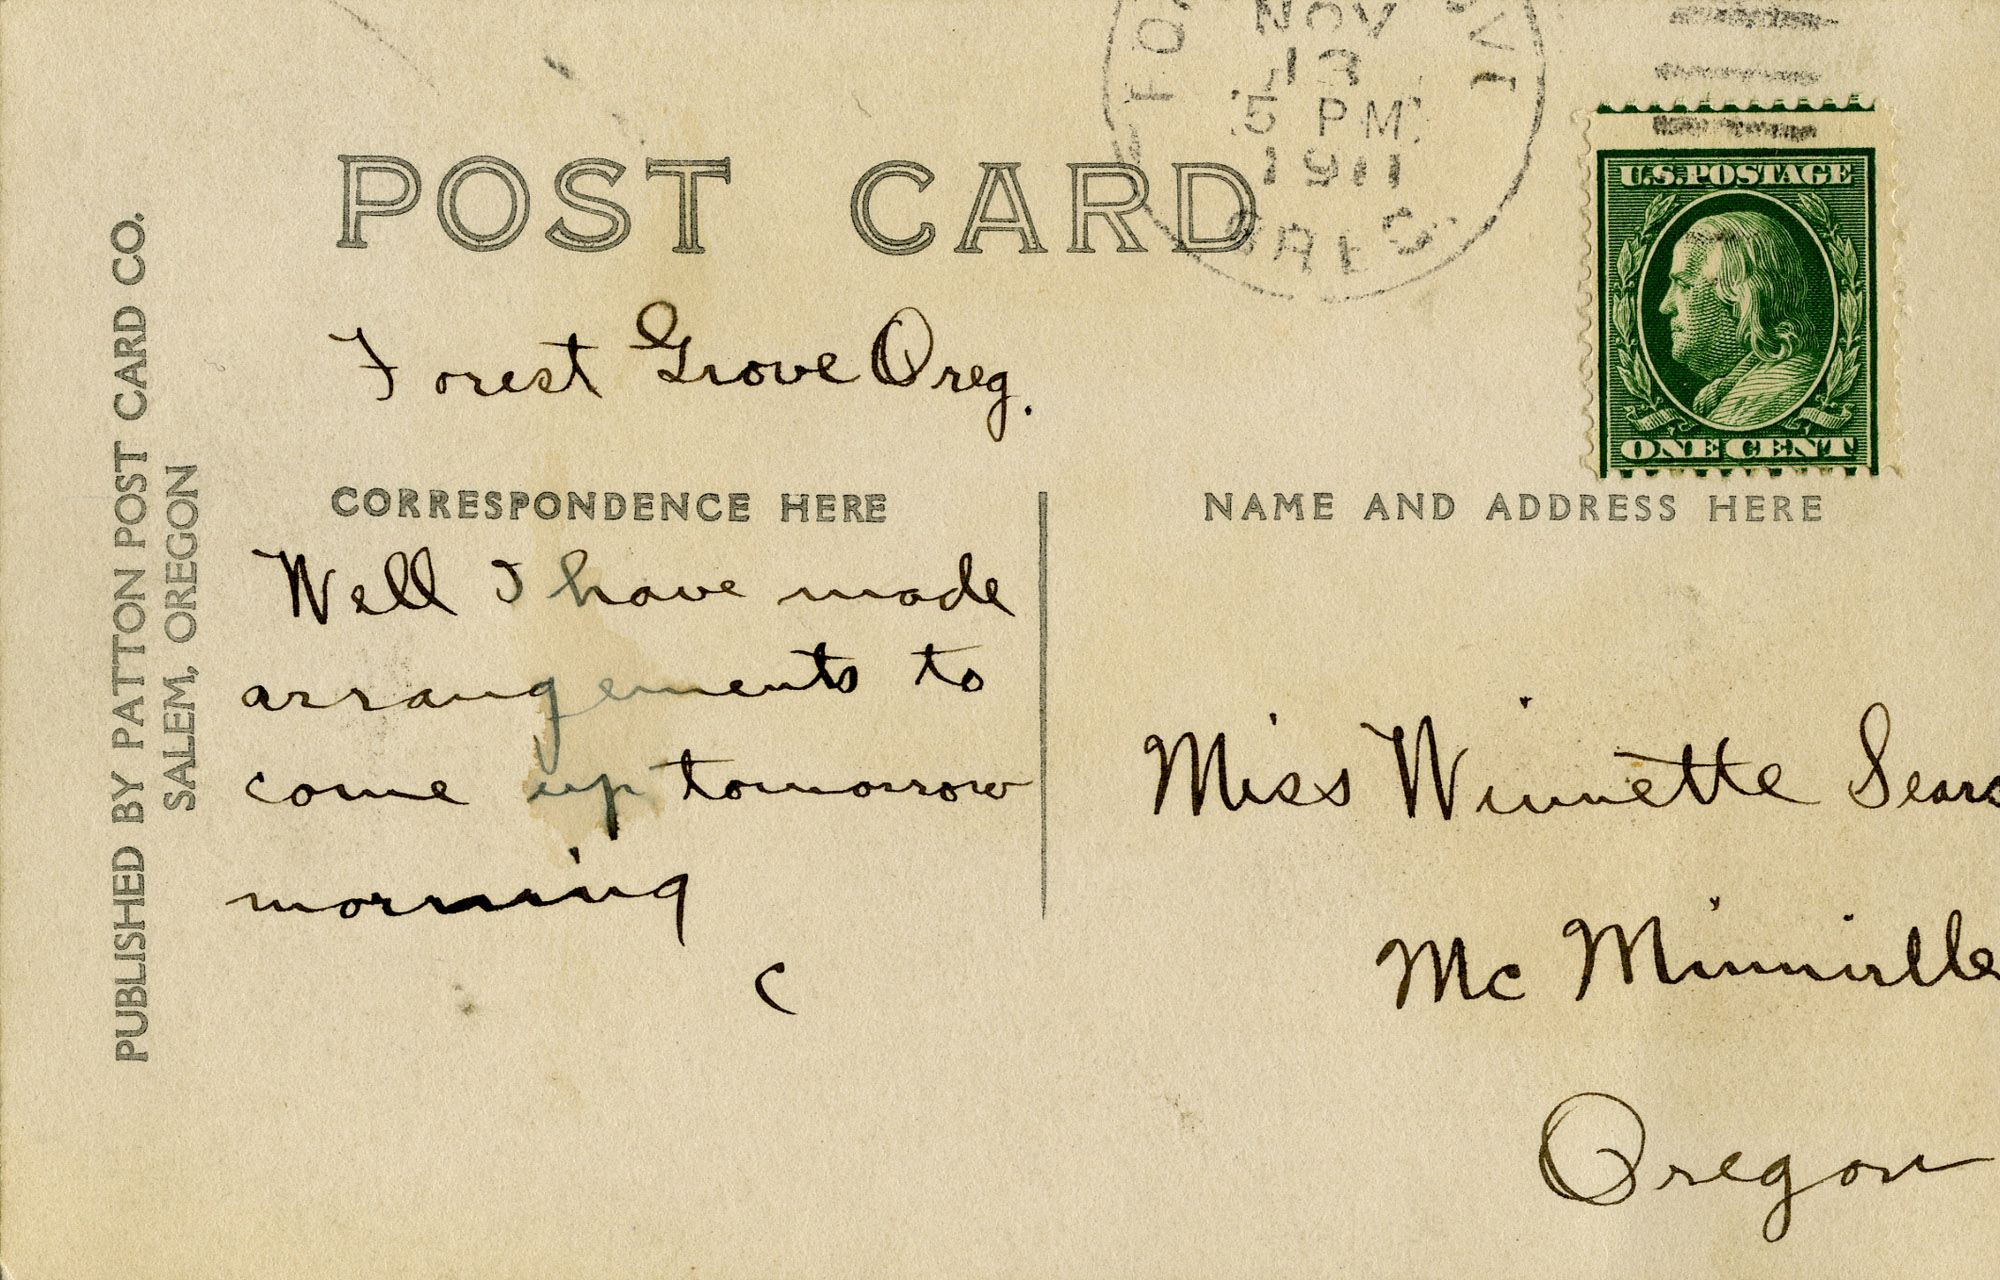 NOV
13
5 PM
1911
OREG.
POST CARD
U.S. POSTAGE
ONE CENT
Forest Grove Oreg.
CORRESPONDENCE HERE
Well I have made
arrangements to
come up tomorrow
morning
C
NAME AND ADDRESS HERE
Miss Winnette Sears
Mc Minnville
Oregon
PUBLISHED BY PATTON POST CARD CO.
SALEM, OREGON